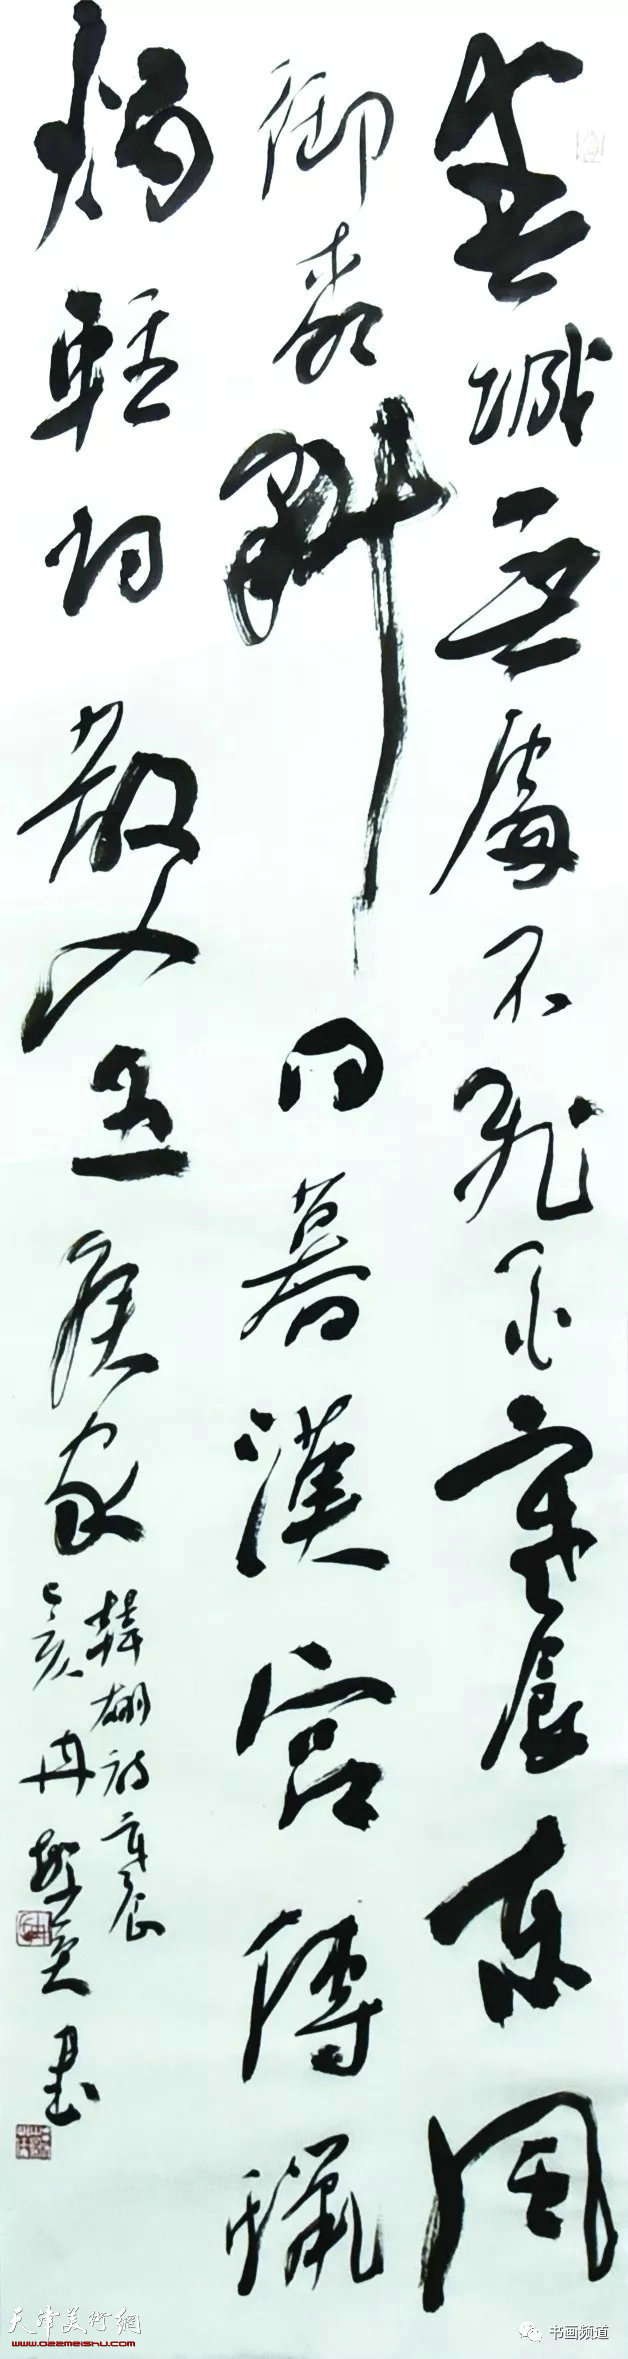 春城無處不飛花寒食東風
御柳斜日暮漢宮傳蠟
燭輕烟散入五侯家
韓翃詩寒食
己亥冉繁英書
天津美術網
www.022meishu.com
书画频道